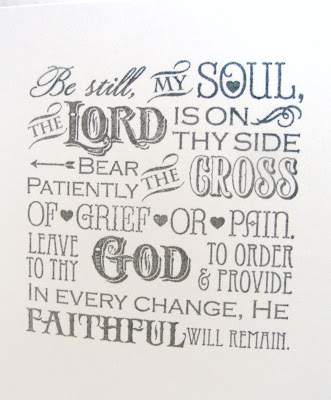 Be still, MY SOUL,
THE LORD IS ON
THY SIDE
BEAR
PATIENTLY THE CROSS
OF GRIEF OR PAIN.
LEAVE
TO THY GOD TO ORDER
& PROVIDE
IN EVERY CHANGE, HE
FAITHFUL WILL REMAIN.